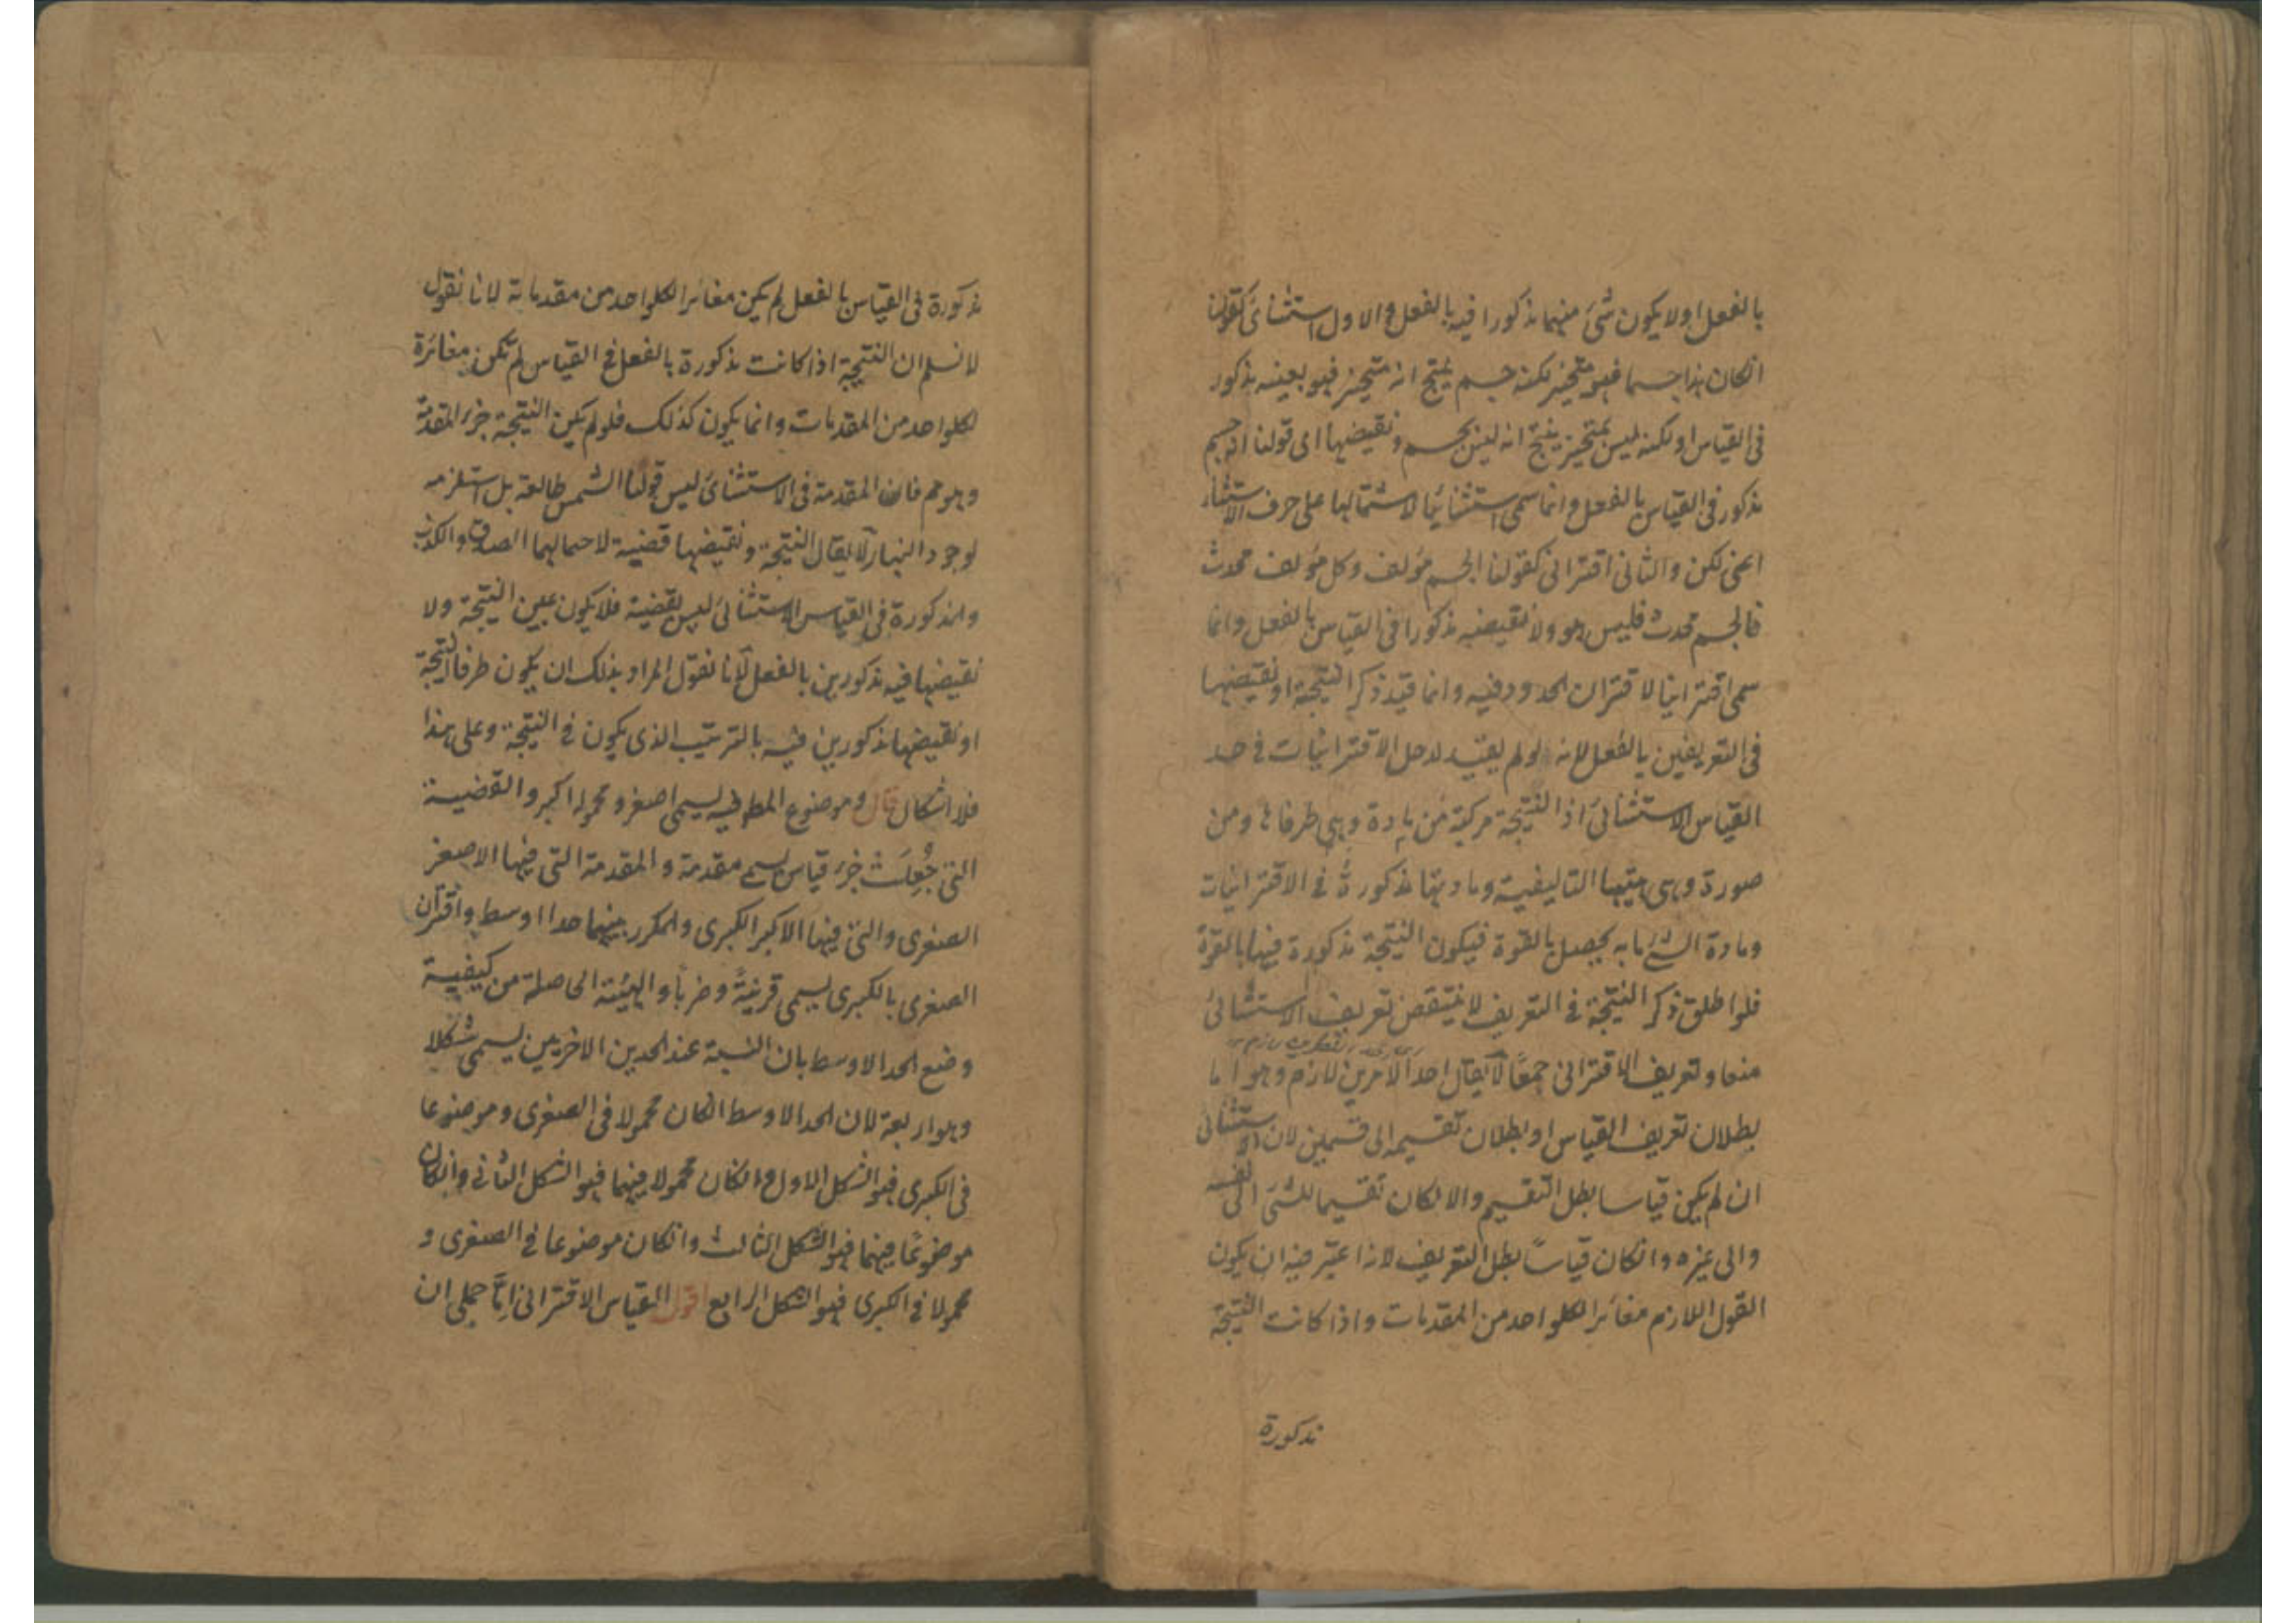 بالفعل اولا يكون شئ منهما مذكورا فيه بالفعل والاول استثنائى كقولنا
انكان هذا جسما فهو متحيز لكنه جسم ينتج انه متحيز فهو بعينه مذكور
فى القياس او لكنه ليس بمتحيز ينتج انه ليس بجسم ونقيضها اى قولنا انه جسم
مذكور فى القياس بالفعل وانما سمى استثنائيا لاشتمالها على حرف الاستثناء
اعنى لكن والثانى اقترانى كقولنا الجسم مؤلف وكل مؤلف محدث
فالجسم محدث فليس هو ولا نقيضه مذكورا فى القياس بالفعل وانما
سمى اقترانيا لاقتران الحدود فيه وانما قيد ذكر النتيجة او نقيضها
فى التعريفين بالفعل لانه لو لم يقيد لدخل الاقترانيات فى حد
القياس الاستثنائى اذ النتيجة مركبة من مادة وهى طرفاها ومن
صورة وهى هيئتها التاليفية ومادتها مذكورة فى الاقترانيات
ومادة الشئ ما به يحصل بالقوة فيكون النتيجة مذكورة فيها بالقوة
فلو اطلق ذكر النتيجة فى التعريف لانتقض تعريف الاستثنائى
منعا وتعريف الاقترانى جمعًا لا يقال احد الامرين لازم وهو اما
بطلان تعريف القياس او بطلان تقسيمه الى قسمين لان الاستثنائى
ان لم يكن قياسا بطل التقسيم والا لكان تقسيما للشئ الى نفسه
والى غيره وانكان قياسًا بطل التعريف لانه اعتبر فيه ان يكون
القول اللازم مغائرا لكلواحد من المقدمات واذا كانت النتيجة
مذكورة
مذكورة فى القياس بالفعل لم يكن مغائرا لكلواحد من مقدماته لانا نقول
لا نسلم ان النتيجة اذا كانت مذكورة بالفعل فى القياس لم تكن مغائرة
لكلواحد من المقدمات وانما يكون كذلك فلو لم يكن النتيجة جزء المقدمة
وهو مم فان المقدمة فى الاستثنائى ليس قولنا الشمس طالعة بل استلزمه
لوجود النهار لا يقال النتيجة ونقيضها قضية لاحتمالهما الصدق والكذب
والمذكورة فى القياس الاستثنائى ليس بقضية فلا يكون عين النتيجة ولا
نقيضها فيه مذكورين بالفعل لانا نقول المراد بذلك ان يكون طرفا النتيجة
او نقيضها مذكورين فيه بالترتيب الذى يكون فى النتيجة وعلى هذا
فلا اشكال قال وموضوع المطلوب فيه يسمى اصغر ومحموله اكبر والقضية
التى جُعِلَتْ جزء قياس يسمى مقدمة والمقدمة التى فيها الاصغر
الصغرى والتى فيها الاكبر الكبرى والمكرر بينهما حدا اوسط واقتران
الصغرى بالكبرى يسمى قرينةً وضربًا والهيئة الحاصلة من كيفية
وضع الحد الاوسط بان النسبة عند الحدين الاخرين يسمى شكلا
وهو اربعة لان الحد الاوسط انكان محمولا فى الصغرى وموضوعا
فى الكبرى فهو الشكل الاول وانكان محمولا فيهما فهو الشكل الثانى وانكان
موضوعًا فيهما فهو الشكل الثالث وانكان موضوعا فى الصغرى و
محمولا فى الكبرى فهو الشكل الرابع اقول القياس الاقترانى اِمَّا حملى ان